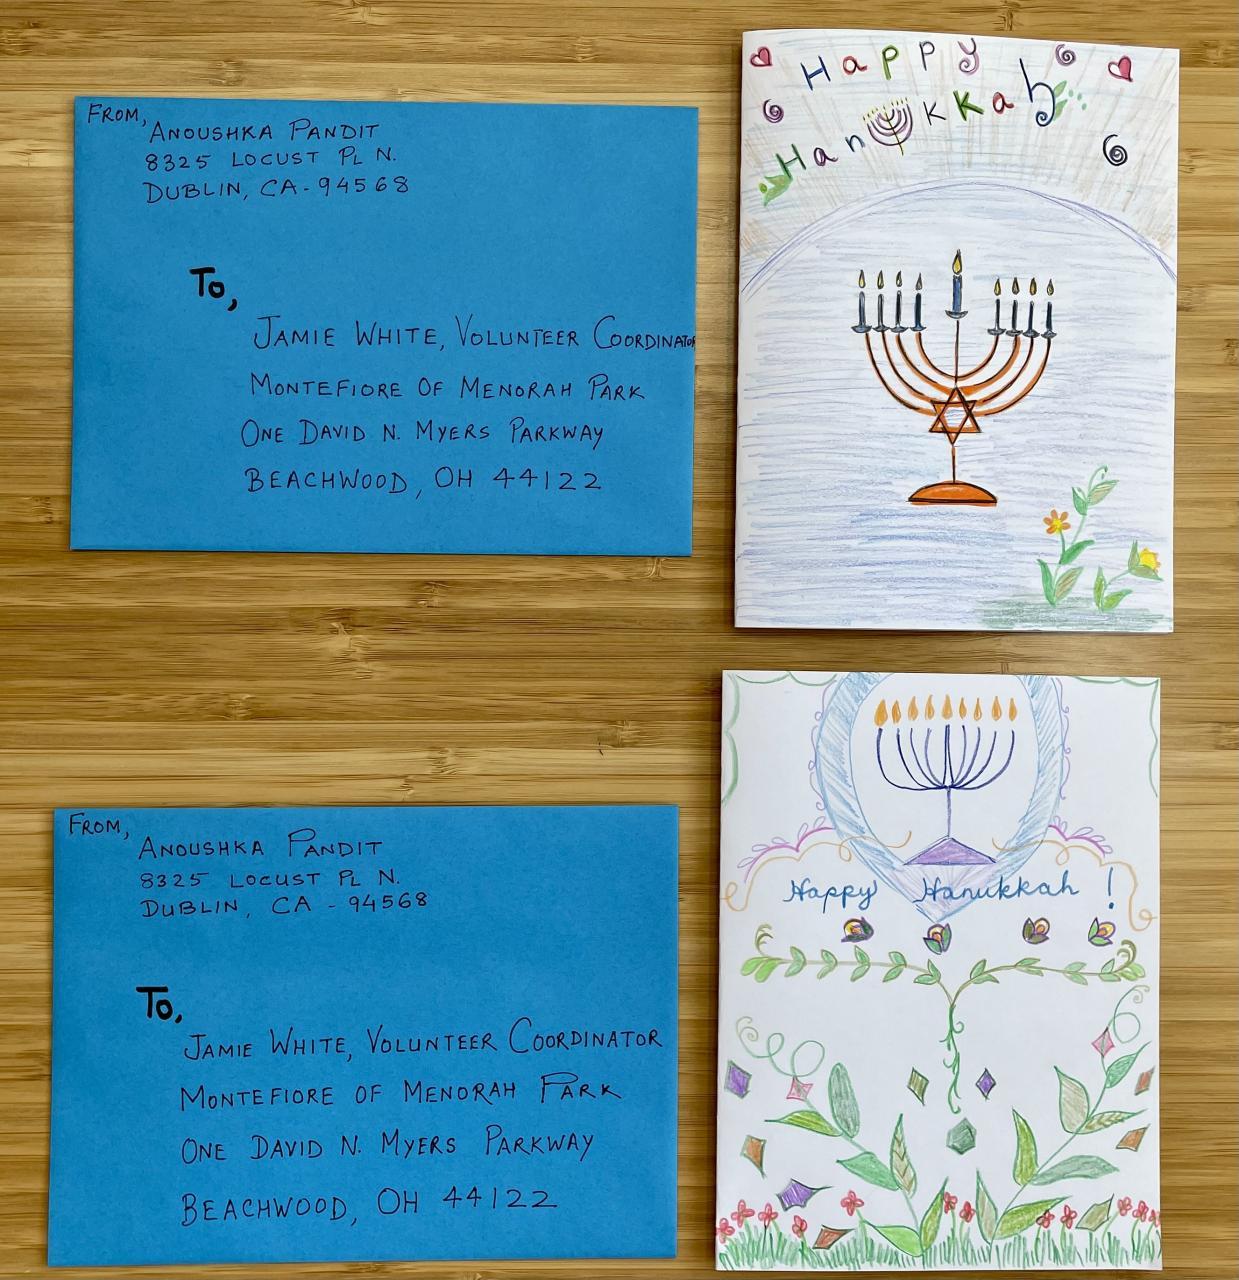 FROM,
ANOUSHKA PANDIT
8325 LOCUST PL N.
DUBLIN, CA - 94568
To,
JAMIE WHITE, VOLUNTEER COORDINATOR
MONTEFIORE OF MENORAH PARK
ONE DAVID N. MYERS PARKWAY
BEACHWOOD, OH 44122
Happy
Hanukkah
FROM,
ANOUSHKA PANDIT
8325 LOCUST PL N.
DUBLIN, CA - 94568
To,
JAMIE WHITE, VOLUNTEER COORDINATOR
MONTEFIORE OF MENORAH PARK
ONE DAVID N. MYERS PARKWAY
BEACHWOOD, OH 44122
Happy Hanukkah!